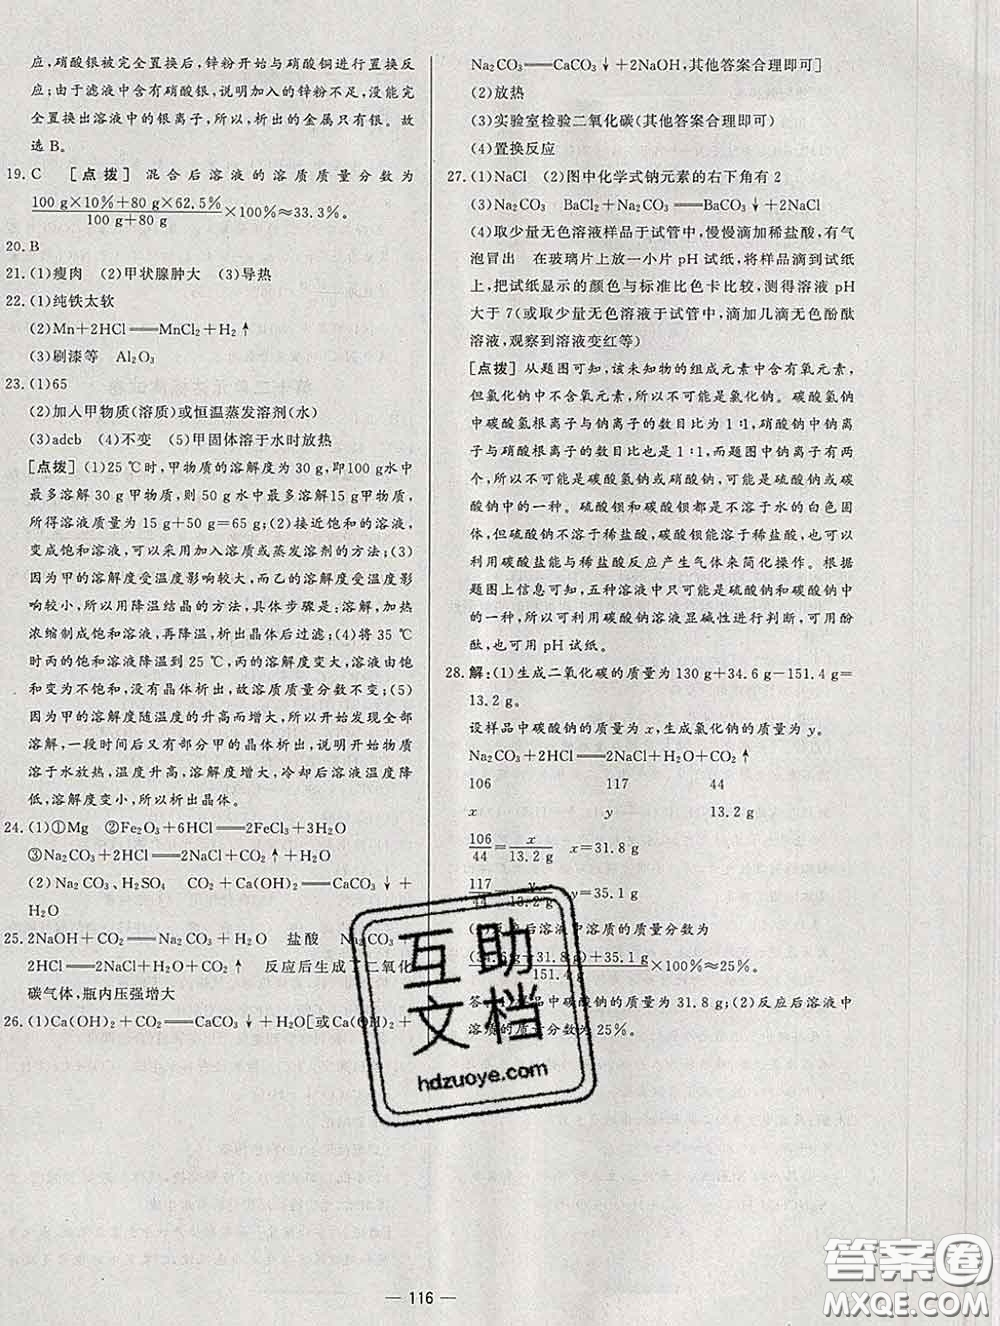 应,硝酸银被完全置换后,锌粉开始与硝酸铜进行置换反
应;由于滤液中含有硝酸银,说明加入的锌粉不足,没能完
全置换出溶液中的银离子,所以,析出的金属只有银。故
选B。
19. C [点拨] 混合后溶液的溶质质量分数为
(100 g×10%+80 g×62.5%)/(100 g+80 g)×100%≈33.3%。
20. B
21. (1)瘦肉 (2)甲状腺肿大 (3)导热
22. (1)纯铁太软
(2)Mn+2HCl══MnCl₂+H₂↑
(3)刷漆等 Al₂O₃
23. (1)65
(2)加入甲物质(溶质)或恒温蒸发溶剂(水)
(3)adcb (4)不变 (5)甲固体溶于水时放热
[点拨] (1)25 ℃时,甲物质的溶解度为30 g,即100 g水中
最多溶解30 g甲物质,则50 g水中最多溶解15 g甲物质,
所得溶液质量为15 g+50 g=65 g;(2)接近饱和的溶液,
变成饱和溶液,可以采用加入溶质或蒸发溶剂的方法;(3)
因为甲的溶解度受温度影响较大,而乙的溶解度受温度影
响较小,所以用降温结晶的方法,具体步骤是:溶解,加热
浓缩制成饱和溶液,再降温,析出晶体后过滤;(4)将35 ℃
时丙的饱和溶液降温到25 ℃,丙的溶解度变大,溶液由饱
和变为不饱和,没有晶体析出,故溶质质量分数不变;(5)
因为甲的溶解度随温度的升高而增大,所以开始发现全部
溶解,一段时间后又有部分甲的晶体析出,说明开始物质
溶于水放热,温度升高,溶解度增大,冷却后溶液温度降
低,溶解度变小,所以析出晶体。
24. (1)①Mg ②Fe₂O₃+6HCl══2FeCl₃+3H₂O
③Na₂CO₃+2HCl══2NaCl+CO₂↑+H₂O
(2)Na₂CO₃、H₂SO₄ CO₂+Ca(OH)₂══CaCO₃↓+
H₂O
25. 2NaOH+CO₂══Na₂CO₃+H₂O 盐酸 Na₂CO₃
2HCl══2NaCl+H₂O+CO₂↑ 反应后生成了二氧化
碳气体,瓶内压强增大
26. (1)Ca(OH)₂+CO₂══CaCO₃↓+H₂O[或Ca(OH)₂+
Na₂CO₃══CaCO₃↓+2NaOH,其他答案合理即可]
(2)放热
(3)实验室检验二氧化碳(其他答案合理即可)
(4)置换反应
27. (1)NaCl (2)图中化学式钠元素的右下角有2
(3)Na₂CO₃ BaCl₂+Na₂CO₃══BaCO₃↓+2NaCl
(4)取少量无色溶液样品于试管中,慢慢滴加稀盐酸,有气
泡冒出 在玻璃片上放一小片pH试纸,将样品滴到试纸
上,把试纸显示的颜色与标准比色卡比较,测得溶液pH
大于7(或取少量无色溶液于试管中,滴加几滴无色酚酞
溶液,观察到溶液变红等)
[点拨] 从题图可知,该未知物的组成元素中含有氧元素,
但氯化钠中不含氧元素,所以不可能是氯化钠。碳酸氢钠
中碳酸氢根离子与钠离子的数目比为1∶1,硝酸钠中钠离
子与硝酸根离子的数目比也是1∶1,而题图中钠离子有两
个,所以不可能是碳酸氢钠或硝酸钠,可能是硫酸钠或碳
酸钠中的一种。硫酸钡和碳酸钡都是不溶于水的白色固
体,但硫酸钡不溶于稀盐酸,碳酸钡能溶于稀盐酸,也可以
利用碳酸盐能与稀盐酸反应产生气体来简化操作。根据
题图上信息可知,五种溶液中只可能是硫酸钠和碳酸钠中
的一种,所以可利用碳酸钠溶液显碱性进行判断,可用酚
酞,也可用pH试纸。
28. 解:(1)生成二氧化碳的质量为130 g+34.6 g-151.4 g=
13.2 g。
设样品中碳酸钠的质量为x,生成氯化钠的质量为y。
Na₂CO₃+2HCl══2NaCl+H₂O+CO₂↑
106 117 44
x y 13.2 g
106/44=x/13.2 g x=31.8 g
117/44=y/13.2 g y=35.1 g
(2)反应后溶液中溶质的质量分数为
((34.6 g-31.8 g)+35.1 g)/151.4 g×100%≈25%。
答:(1)样品中碳酸钠的质量为31.8 g;(2)反应后溶液中
溶质的质量分数为25%。
互助
文档
hdzuoye.com
答案圈
MXQE.COM
— 116 —